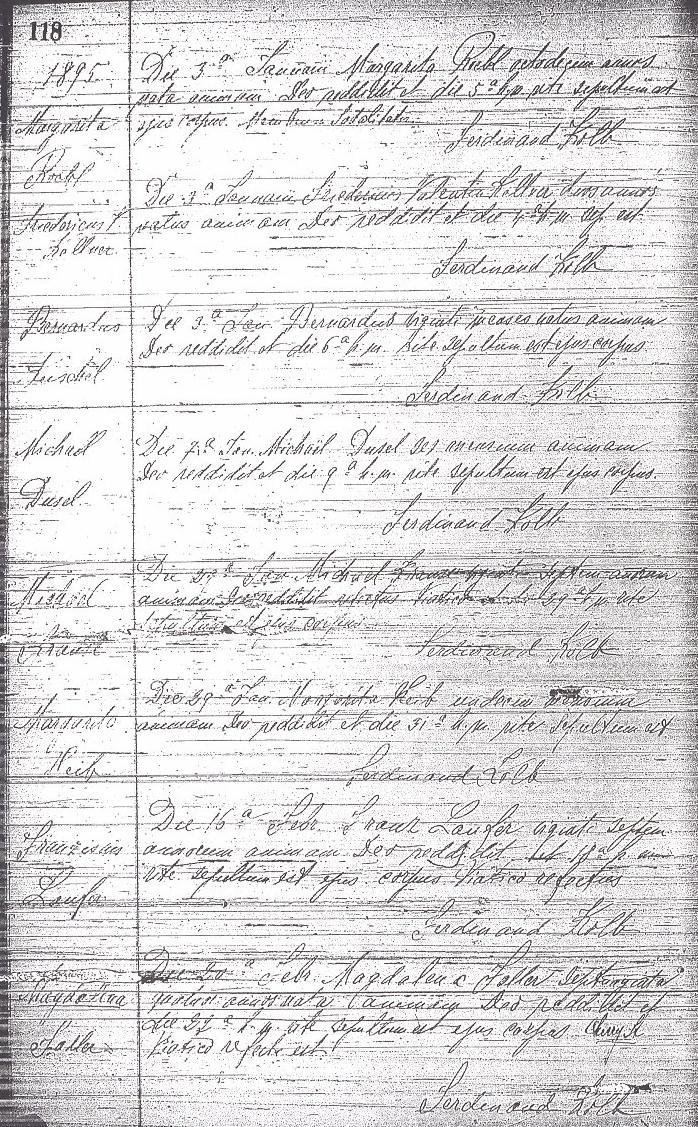 118
1895
Margarita
Die 3.a Januarii Margarita Roehl octodecim annos
nata animam Deo reddidit et die 5.a h.m. rite sepultum est
ejus corpus.
Ferdinand Kolb
Roehl
Fridericus V.
Kollner
Die 3.a Januarii Fridericus Valentin Kollner duos annos
natus animam Deo reddidit et die h.m. sep. est
Ferdinand Kolb
Bernardus
Die 3.a Jan. Bernardus viginti menses natus animam
Deo reddidit et die 6.a h.m. rite sepultum est ejus corpus
Ferdinand Kolb
Michael
Dusel
Die 7.a Jan. Michaël Dusel sex mensium animam
Deo reddidit et die 9.a h.m. rite sepultum est ejus corpus.
Ferdinand Kolb
Michael
Krause
Die 27.a Jan Michael Krause septem annorum
animam Deo reddidit h.m. rite
sepultum est ejus corpus
Ferdinand Kolb
Margarita
Keib
Die 29.a Jan. Margarita Keib undecim mensium
animam Deo reddidit et die 31.a h.m. rite sepultum est
Ferdinand Kolb
Franziscus
Laufer
Die 16.a Febr. Frank Laufer viginti septem
annorum animam Deo reddidit, et 18.a
rite sepultum est ejus corpus viatico refectus
Ferdinand Kolb
Magdalena
Faller
Die 20.a Febr. Magdalena Faller septuaginta
annos nata animam Deo reddidit et
die 22.a h.m. rite sepultum est ejus corpus
viatico refecta est.
Ferdinand Kolb